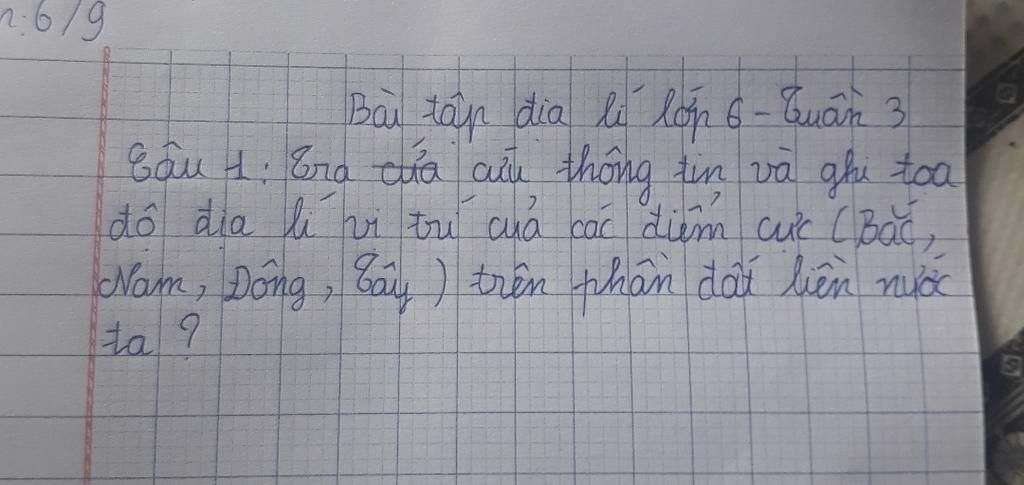 n: 6/9
Bài tập địa lí lớp 6 - Tuần 3
Câu 1: Tra cứu thông tin và ghi toạ
độ địa lí vị trí của các điểm cực (Bắc,
Nam, Đông, Tây) trên phần đất liền nước
ta ?